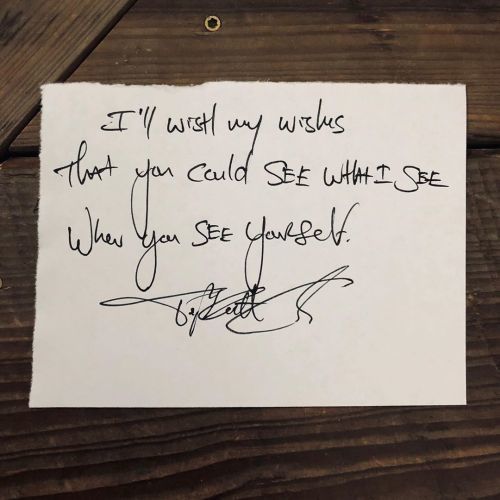 I'll wish my wishes
That you could SEE WHAT I SEE
When you SEE yourself.